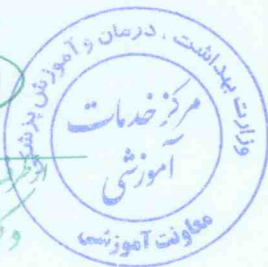 وزارت بهداشت ، درمان و آموزش پزشکی
مرکز خدمات
آموزشی
معاونت آموزشی